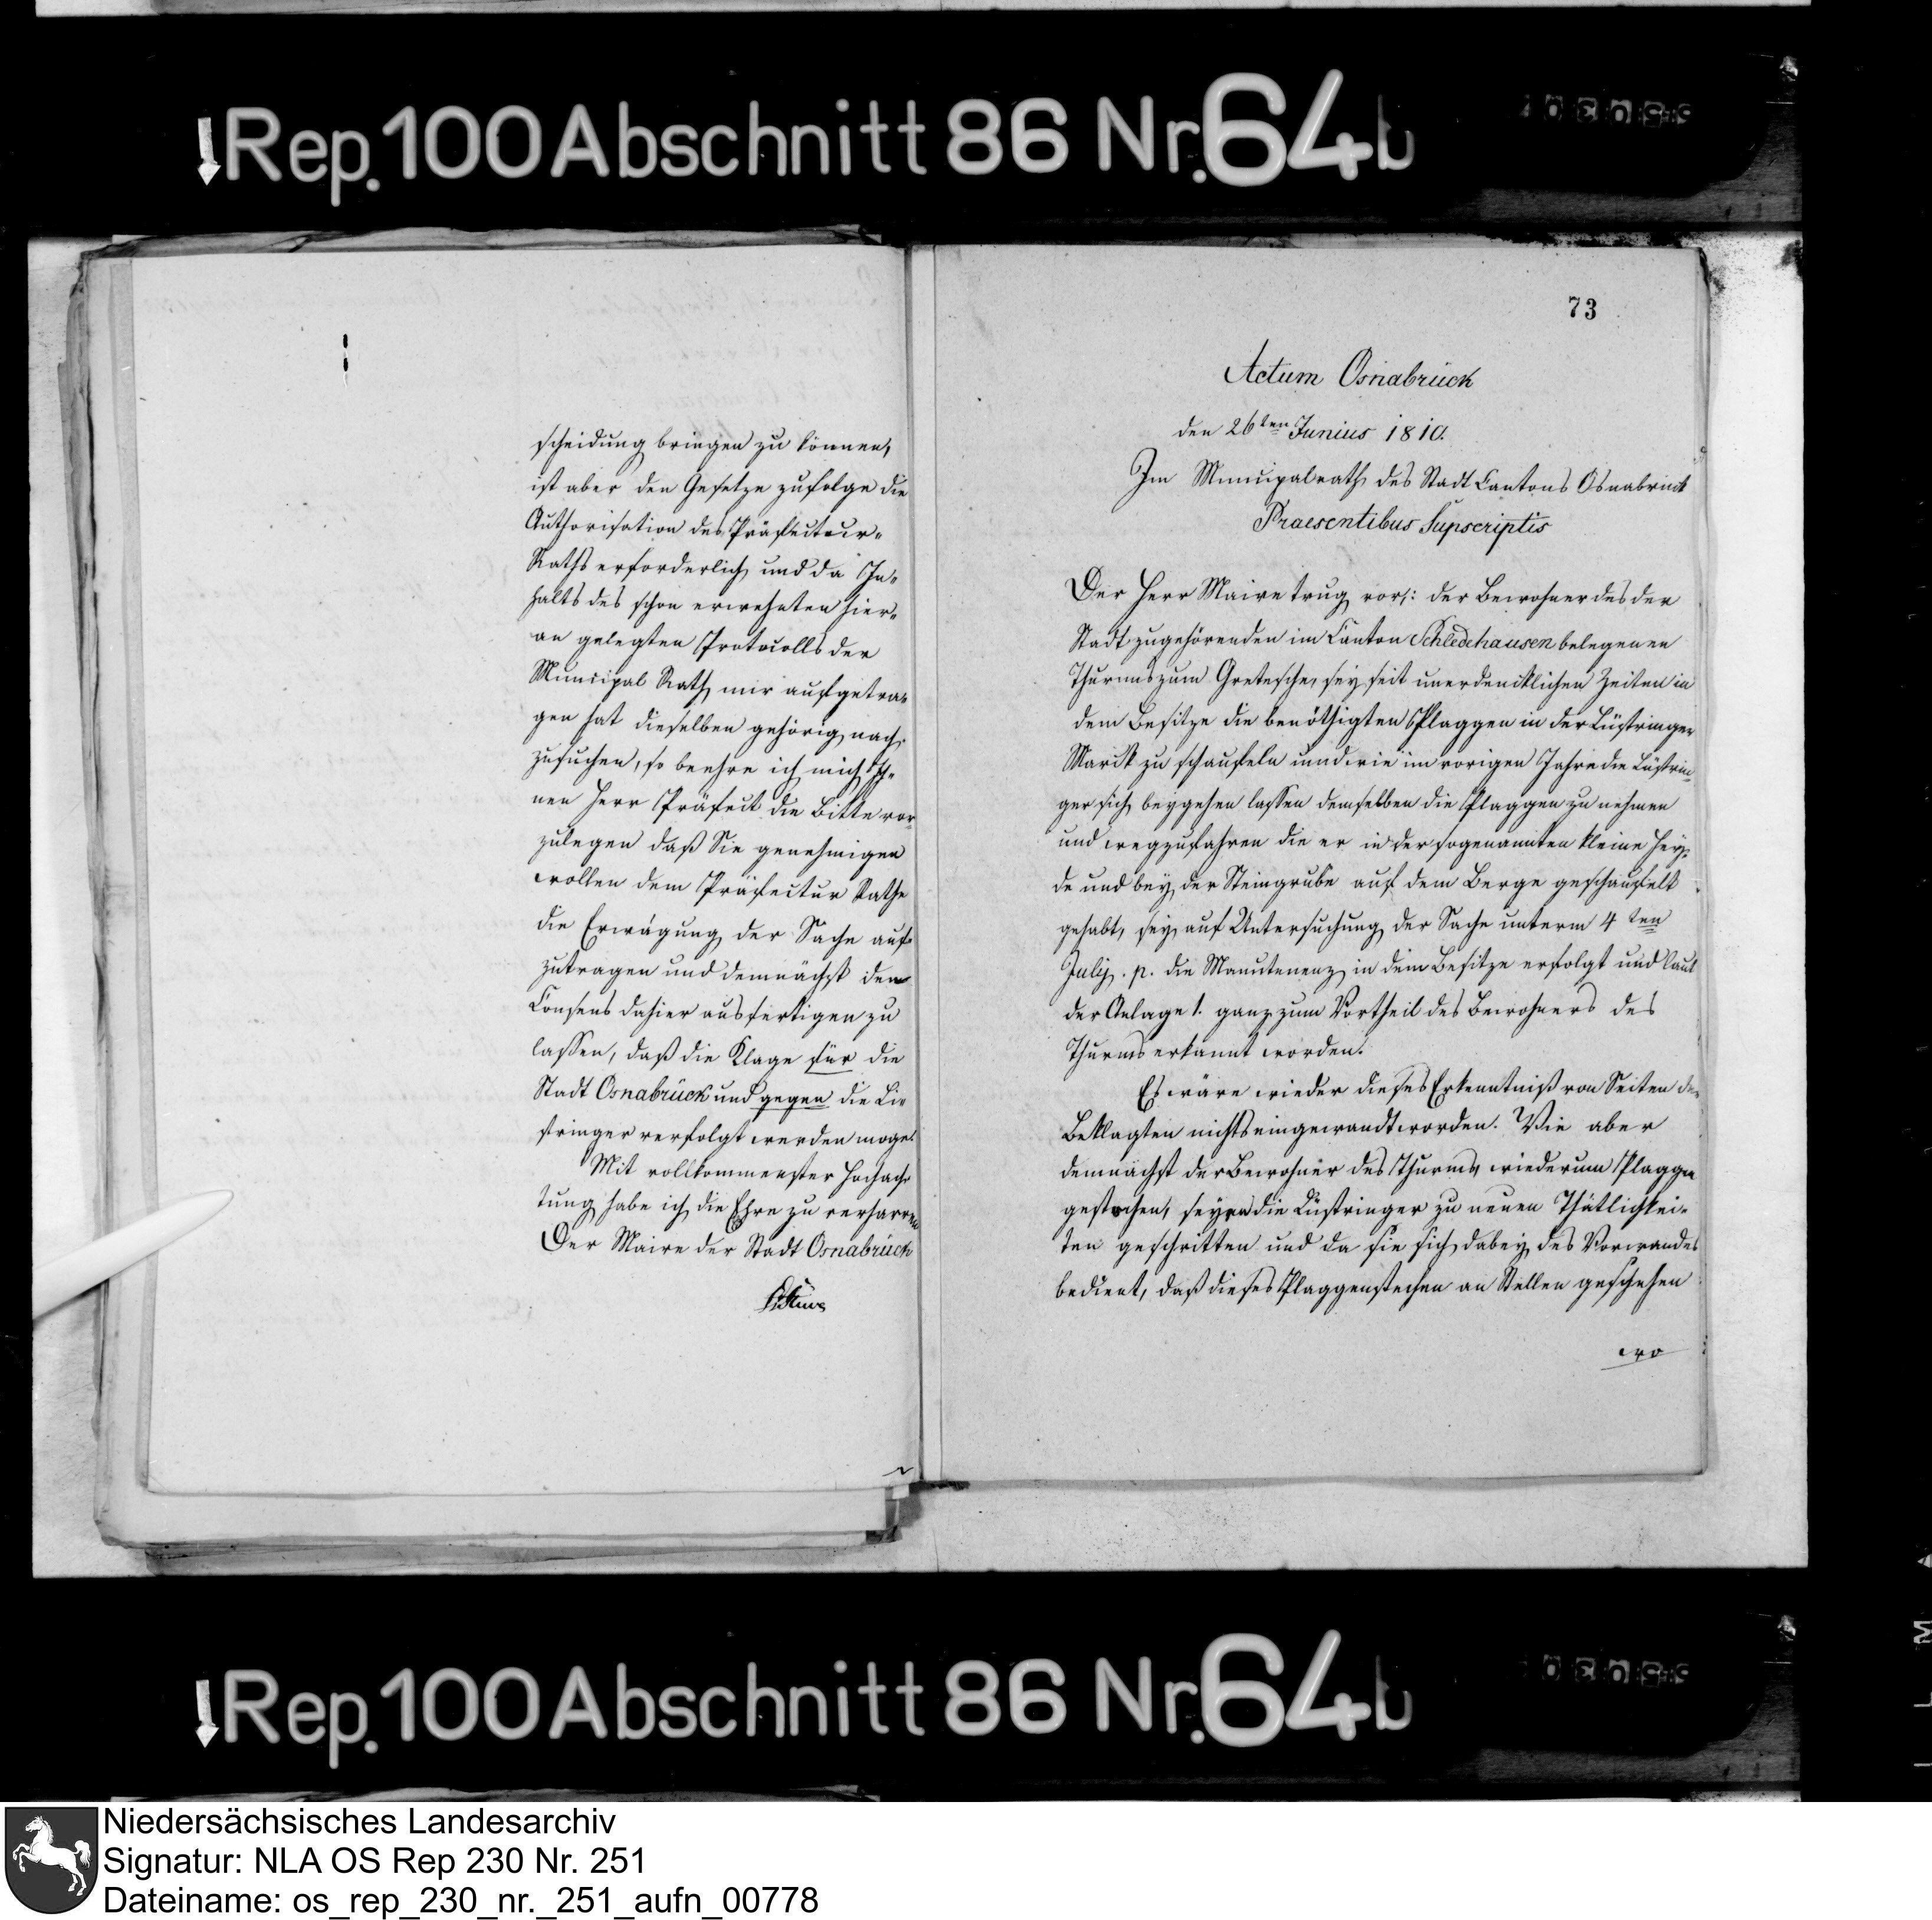 Rep. 100 Abschnitt 86 Nr. 64b
scheidung bringen zu können,
ist aber den Gesetze zufolge die
Authorisation des Präfectur-
Raths erforderlich und da In-
halts des schon erwehnten hier-
an gelegten Protocolls der
Municipal Rath mir aufgetra-
gen hat dieselben gehörig nach
zusuchen, so beehre ich mich Ih-
nen Herr Präfect die Bitte vor
zulegen daß Sie genehmigen
wollen dem Präfectur Rathe
die Erwägung der Sache auf-
zutragen und demnächst den
Consens dahier ausfertigen zu
lassen, daß die Klage für die
Stadt Osnabrück und gegen die Lü-
stringer verfolgt werden moge.
Mit vollkommenster Hochach-
tung habe ich die Ehre zu verharren
Der Maire der Stadt Osnabrück
Stüve
73
Actum Osnabrück
den 26ten Junius 1810.
Im Municipalrath des Stadt Cantons Osnabrück
Praesentibus Supscriptis
Der Herr Maire trug vor: der Bewohner des der
Stadt zugehörenden im Canton Schledehausen belegenen
Thurms zum Gretesche, sey seit unerdencklichen Zeiten in
dem Besitze die benöthigten Plaggen in der Lüstringer
Marck zu schaufeln und wie im vorigen Jahre die Lüstrin-
ger sich beygehen lassen demselben die Plaggen zu nehmen
und wegzufahren die er in der sogenannten kleine Hey-
de und bey der Steingrube auf dem Berge geschaufelt
gehabt, sey auf Untersuchung der Sache unterm 4ten
July. p. die Manutenenz in dem Besitze erfolgt und laut
der Anlage 1. ganz zum Vortheil des Bewohners des
Thurms erkannt worden.
Es wäre wieder dieses Erkenntniß von Seiten der
Beklagten nichts eingewandt worden. Wie aber
demnächst der Bewohner des Thurms wiederum Plaggen
gestochen, seyen die Lüstringer zu neuen Thätlichkei-
ten geschritten und da sie sich dabey des Vorwandes
bedient, daß dieses Plaggenstechen an Stellen geschehen
wo
Rep. 100 Abschnitt 86 Nr. 64b
Niedersächsisches Landesarchiv
Signatur: NLA OS Rep 230 Nr. 251
Dateiname: os_rep_230_nr._251_aufn_00778